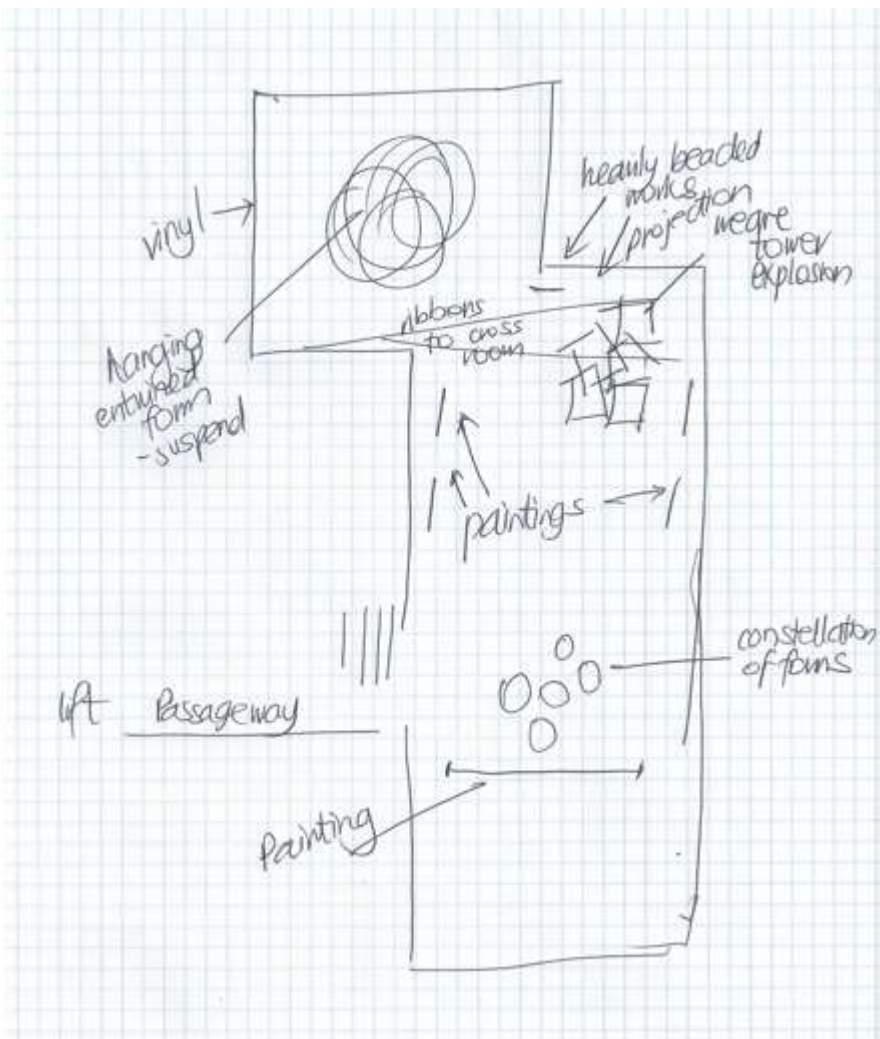 vinyl
heavily beaded
works
projection
wegre
tower
explosion
ribbons
to cross
room
hanging
entwined
form
- suspend
paintings
constellation
of forms
lift Passageway
Painting